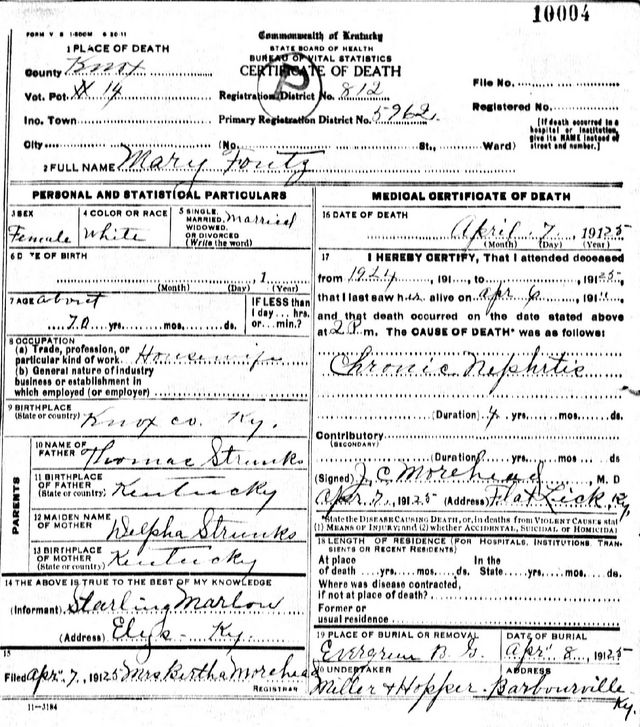 10004
FORM V S 1-500M 6 20-11
Commonwealth of Kentucky
STATE BOARD OF HEALTH
BUREAU OF VITAL STATISTICS
CERTIFICATE OF DEATH
1 PLACE OF DEATH
County Knox
Vot. Pct. 14
Inc. Town
City (No. St., Ward)
Registration District No. 812
Primary Registration District No. 5962
File No.
Registered No.
[If death occurred in a hospital or institution, give its NAME instead of street and number.]
2 FULL NAME Mary Foutz
PERSONAL AND STATISTICAL PARTICULARS
3 SEX Female
4 COLOR OR RACE White
5 SINGLE, MARRIED, WIDOWED, OR DIVORCED (Write the word) Married
6 DATE OF BIRTH
(Month) (Day) 1 (Year)
7 AGE about
70 yrs. mos. ds.
IF LESS than 1 day... hrs. or... min.?
8 OCCUPATION
(a) Trade, profession, or particular kind of work Housewife
(b) General nature of industry business or establishment in which employed (or employer)
9 BIRTHPLACE
(State or country) Knox co. Ky.
PARENTS
10 NAME OF FATHER Thomas Strunks
11 BIRTHPLACE OF FATHER (State or country) Kentucky
12 MAIDEN NAME OF MOTHER Delpha Strunks
13 BIRTHPLACE OF MOTHER (State or country) Kentucky
14 THE ABOVE IS TRUE TO THE BEST OF MY KNOWLEDGE
(Informant) Starling Marlow
(Address) Elys - Ky.
15
Filed Apr. 7, 1912 5 Mrs Bertha Morehead
REGISTRAR
11-3184
MEDICAL CERTIFICATE OF DEATH
16 DATE OF DEATH
April 7 19125
(Month) (Day) (Year)
17 I HEREBY CERTIFY, That I attended deceased
from 1924, 191, to, 19125,
that I last saw her alive on Apr 6, 191"
and that death occurred on the date stated above
at 2 P. m. The CAUSE OF DEATH* was as follows:
Chronic Nephrtis
(Duration) yrs. mos. ds.
Contributory
(SECONDARY)
(Duration) yrs. mos. ds.
(Signed) J. C. Morehead, M. D
Apr. 7, 1912 5 (Address) Flat Lick, Ky
*State the DISEASE CAUSING DEATH, or, in deaths from VIOLENT CAUSES, stat
(1) MEANS OF INJURY; and (2) whether ACCIDENTAL, SUICIDAL, OR HOMICIDAL
18 LENGTH OF RESIDENCE (FOR HOSPITALS, INSTITUTIONS, TRANSIENTS OR RECENT RESIDENTS)
At place of death yrs. mos. ds. In the State yrs. mos. ds.
Where was disease contracted,
if not at place of death?
Former or
usual residence
19 PLACE OF BURIAL OR REMOVAL
Evergreen B. G.
DATE OF BURIAL
Apr. 8, 1912 5
20 UNDERTAKER
Miller & Hopper
ADDRESS
Barbourville Ky.